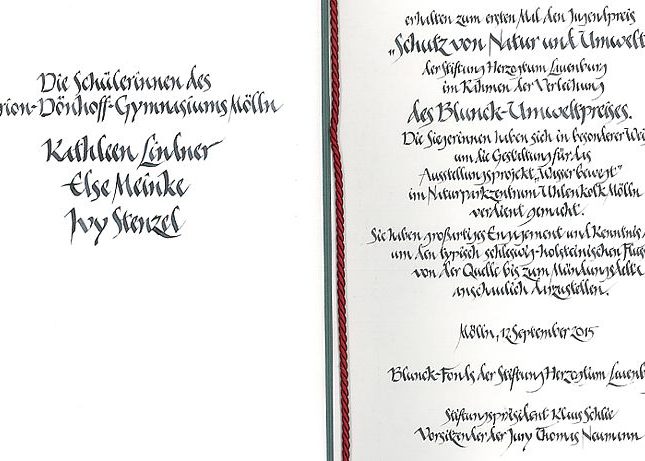 Die Schülerinnen des
rion-Dönhoff-Gymnasiums Mölln
Kathleen Lindner
Else Meinke
Ivy Stenzel
erhalten zum ersten Mal den Jugendpreis
„Schutz von Natur und Umwelt
der Stiftung Herzogtum Lauenburg
im Rahmen der Verleihung
des Blunck-Umweltpreises.
Die Siegerinnen haben sich in besonderer Wei
um die Gestaltung für das
Ausstellungsprojekt „Wasser bewegt"
im Naturparkzentrum Uhlenkolk Mölln
verdient gemacht.
Sie haben großartiges Engagement und Kenntnis
um den typisch schleswig-holsteinischen Fluss
von der Quelle bis zum Mündungsdelta
anschaulich darzustellen.
Mölln, 12. September 2015
Blunck-Fonds der Stiftung Herzogtum Lauenb
Stiftungspräsident Klaus Schlie
Vorsitzender der Jury Thomas Neumann